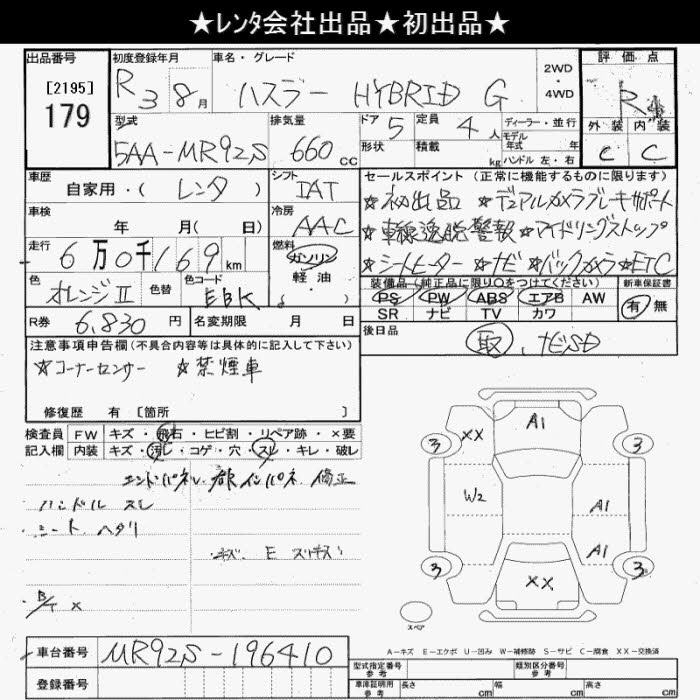 ★レンタ会社出品★初出品★
出品番号 初度登録年月 車名・グレード 2WD・4WD 評価点
[2195] 179 R3 8月 ハスラー HYBRID G R4
型式 排気量 ドア 定員 ディーラー・並行 外装 内装
5AA-MR92S 660cc 5 4人 モデル年式 年 C C
形状 積載 kg ハンドル 左・右
車歴 シフト セールスポイント(正常に機能するものに限ります)
自家用・(レンタ) IAT ☆初出品 ☆デュアルカメラブレーキサポート
車検 冷房 ☆車線逸脱警報 ☆アイドリングストップ
年 月(日) AAC ☆シートヒーター ☆ナビ ☆バックカメラ ☆ETC
走行 燃料
6万0千169km ガソリン 軽・油
色 色替 色コード 装備品(純正品に限り○をつけてください) 新車保証書
オレンジⅡ EBK PS PW ABS エアB AW 有 無
SR ナビ TV カワ
R券 6,830円 名変期限 月 日 後日品
取 ナビSD
注意事項申告欄(不具合内容等は具体的に記入して下さい)
☆コーナーセンサー ☆禁煙車
修復歴 有 [箇所 ]
検査員 FW キズ・飛石・ヒビ割・リペア跡・×要
記入欄 内装 キズ・汚レ・コゲ・穴・スレ・キレ・破レ
エンドパネル 修正
ハンドル スレ
シート ヘタリ
・キズ E
B/T ×
A1
XX
3 3
W2 A1
A1
3 3
XX
スペア
A－キズ E－エクボ U－凹み W－補修跡 S－サビ C－腐食 XX－交換済
車台番号 MR92S-196410
登録番号
型式指定番号 参考 類別区分番号 参考
車庫証明用 参考 長さ cm 幅 cm 高さ cm